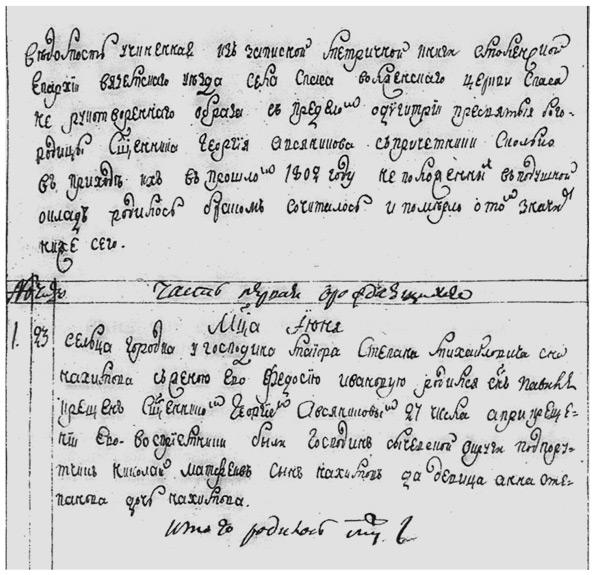 Вѣдомость учиненная изъ записной метричной книги смоленской
Епархіи вяземскаго уезда села Спаса волженскаго церкви Спаса
не рукотвореннаго образа съ пределомъ одигитрии пресвятыя бого-
родицы Священника Георгія Овсяникова съ причетники сколько
въ приходѣ ихъ въ прошломъ 1802 году не положенныхъ въ подушной
окладъ родилось бракомъ сочиталось и померло о томъ значитъ
ниже сего.
№ число Часть первая о рождающихся
Мца Июня
1. 23 сельца городка у господина маіора Степана михайловича сна
нахимова съ женою его Федосию ивановую родился снъ Павилъ
крещенъ Священникомъ Георгиемъ Овсяниковымъ 27 числа а при креще-
ніи его воспріемники были господинъ сычевской округи подпору-
тчикъ николай матвеевъ сынъ нахимовъ да девица анна сте-
панова дочь нахимова.
Итого родилось муж. 1